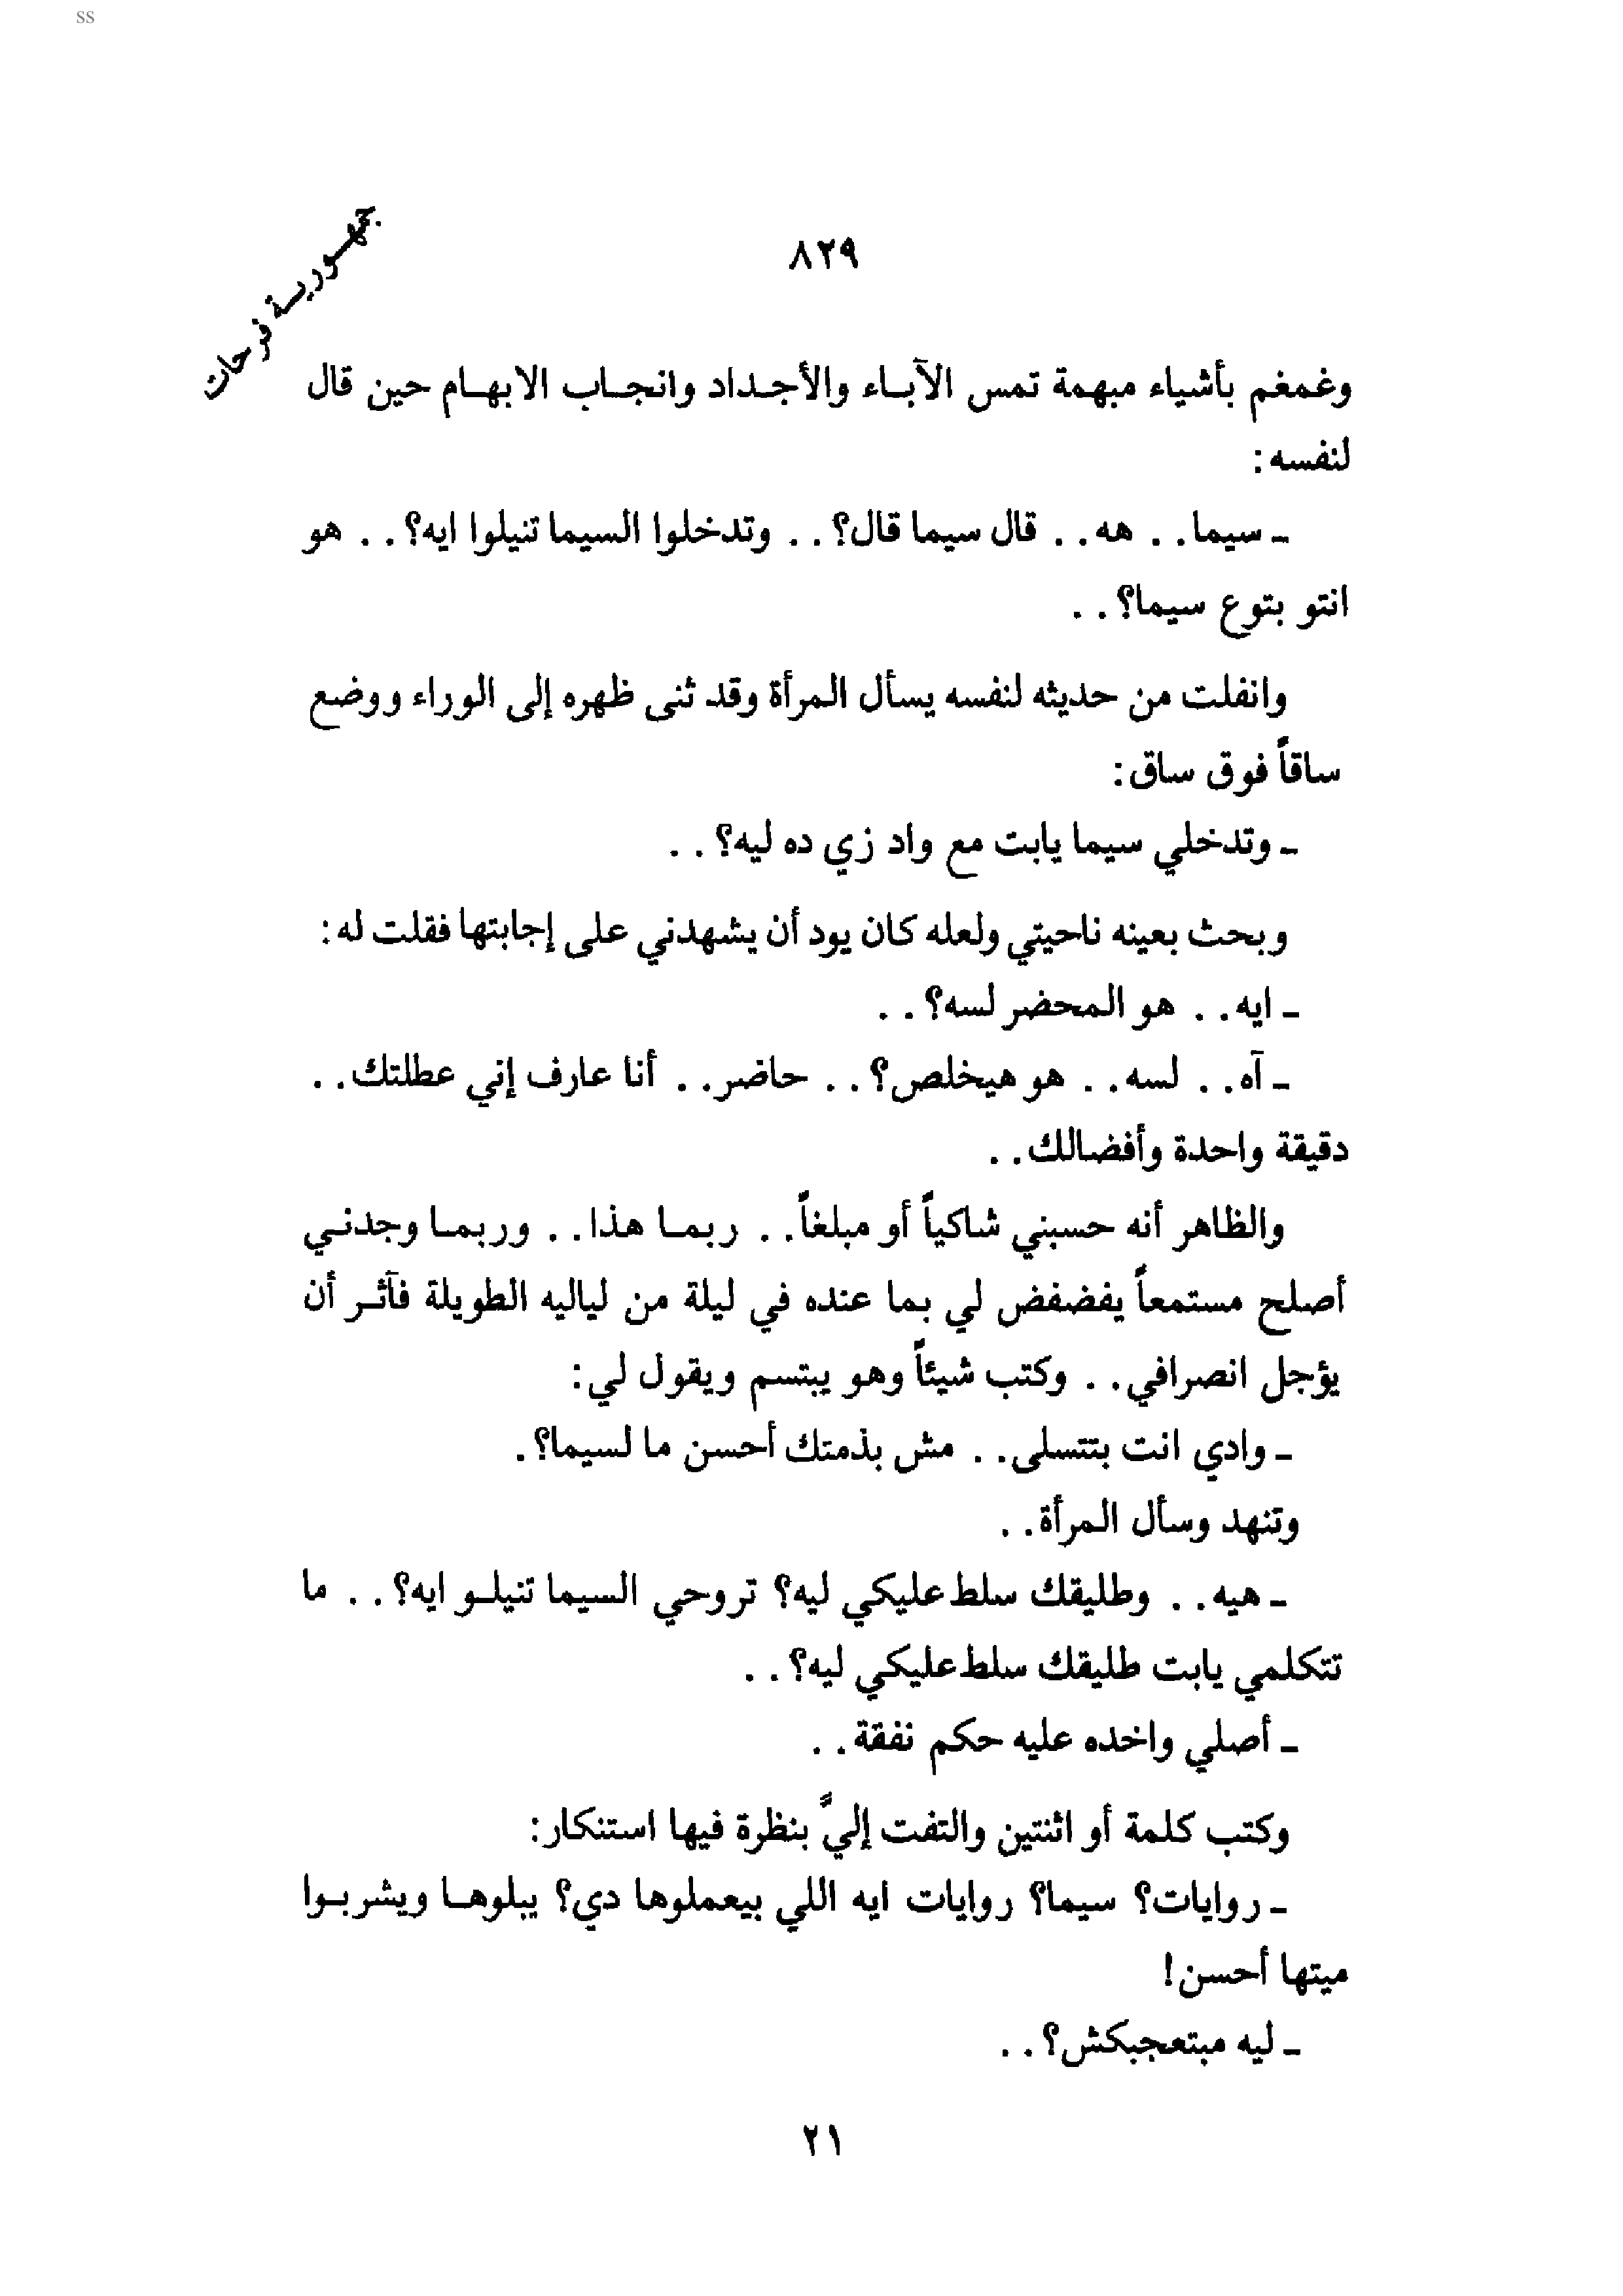 ss
٨٢٩
جمهورية فرحات
وغمغم بأشياء مبهمة تمس الآباء والأجداد وانجاب الابهام حين قال
لنفسه:
ـ سيما.. هه.. قال سيما قال؟.. وتدخلوا السيما تنيلوا ايه؟.. هو
انتو بتوع سيما؟..
وانفلت من حديثه لنفسه يسأل المرأة وقد ثنى ظهره إلى الوراء ووضع
ساقاً فوق ساق:
ـ وتدخلي سيما يابت مع واد زي ده ليه؟..
وبحث بعينه ناحيتي ولعله كان يود أن يشهدني على إجابتها فقلت له:
ـ ايه.. هو المحضر لسه؟..
ـ آه.. لسه.. هو هيخلص؟.. حاضر.. أنا عارف إني عطلتك..
دقيقة واحدة وأفضالك..
والظاهر أنه حسبني شاكياً أو مبلغاً.. ربما هذا.. وربما وجدني
أصلح مستمعاً يفضفض لي بما عنده في ليلة من لياليه الطويلة فآثر أن
يؤجل انصرافي.. وكتب شيئاً وهو يبتسم ويقول لي:
ـ وادي انت بتتسلى.. مش بذمتك أحسن ما لسيما؟.
وتنهد وسأل المرأة..
ـ هيه.. وطليقك سلط عليكي ليه؟ تروحي السيما تنيلو ايه؟.. ما
تتكلمي يابت طليقك سلط عليكي ليه؟..
ـ أصلي واخده عليه حكم نفقة..
وكتب كلمة أو اثنتين والتفت إليً بنظرة فيها استنكار:
ـ روايات؟ سيما؟ روايات ايه اللي بيعملوها دي؟ يبلوها ويشربوا
ميتها أحسن!
ـ ليه مبتعجبكش؟..
٢١